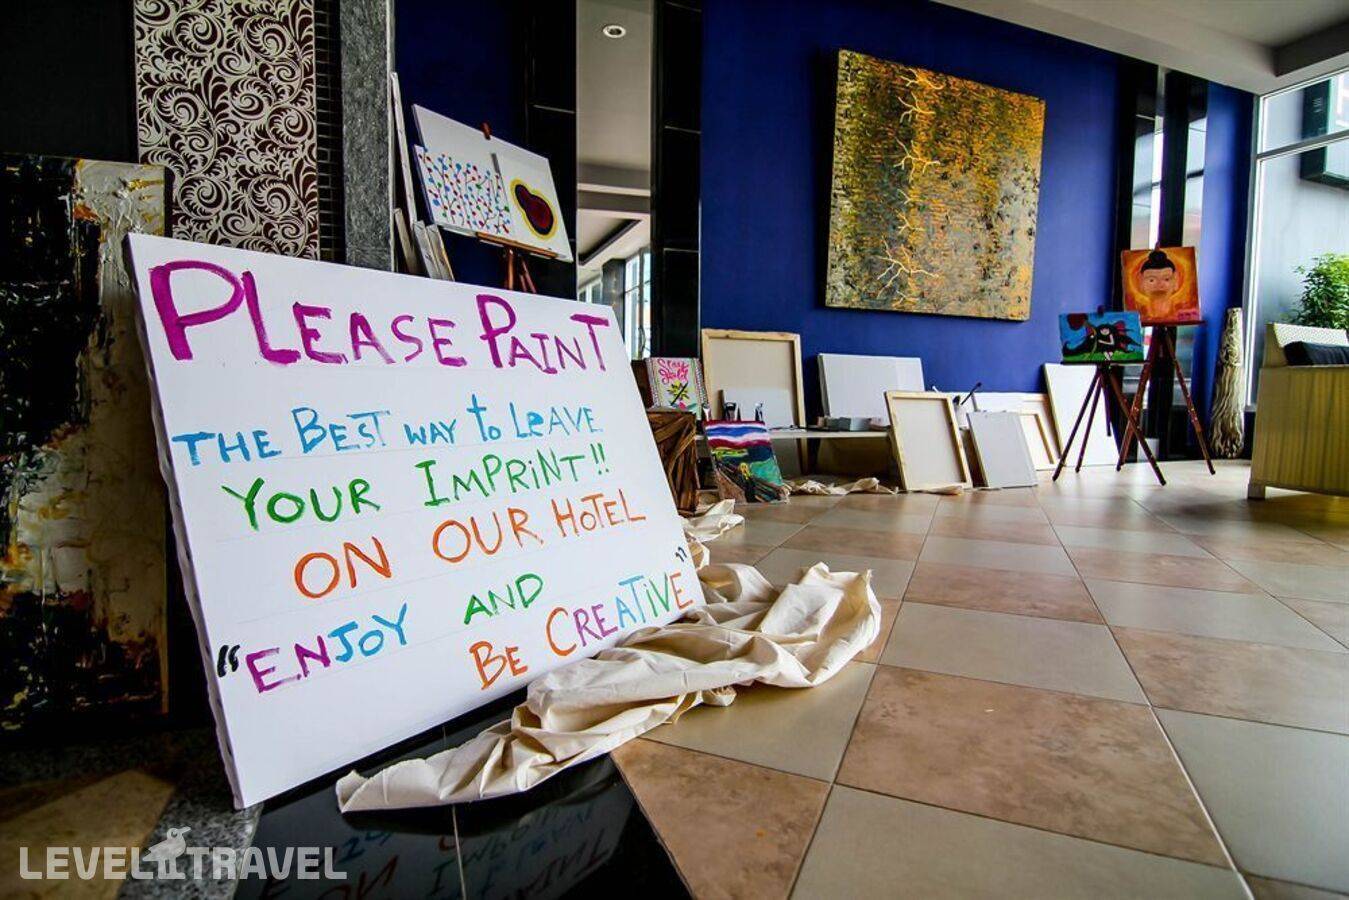 PLEASE PAINT
THE BEST WAY to LeAVE
YOUR IMPRiNT!!
ON OUR HOTEL
“ENJOY AND
BE CREATiVE”
LEVEL TRAVEL